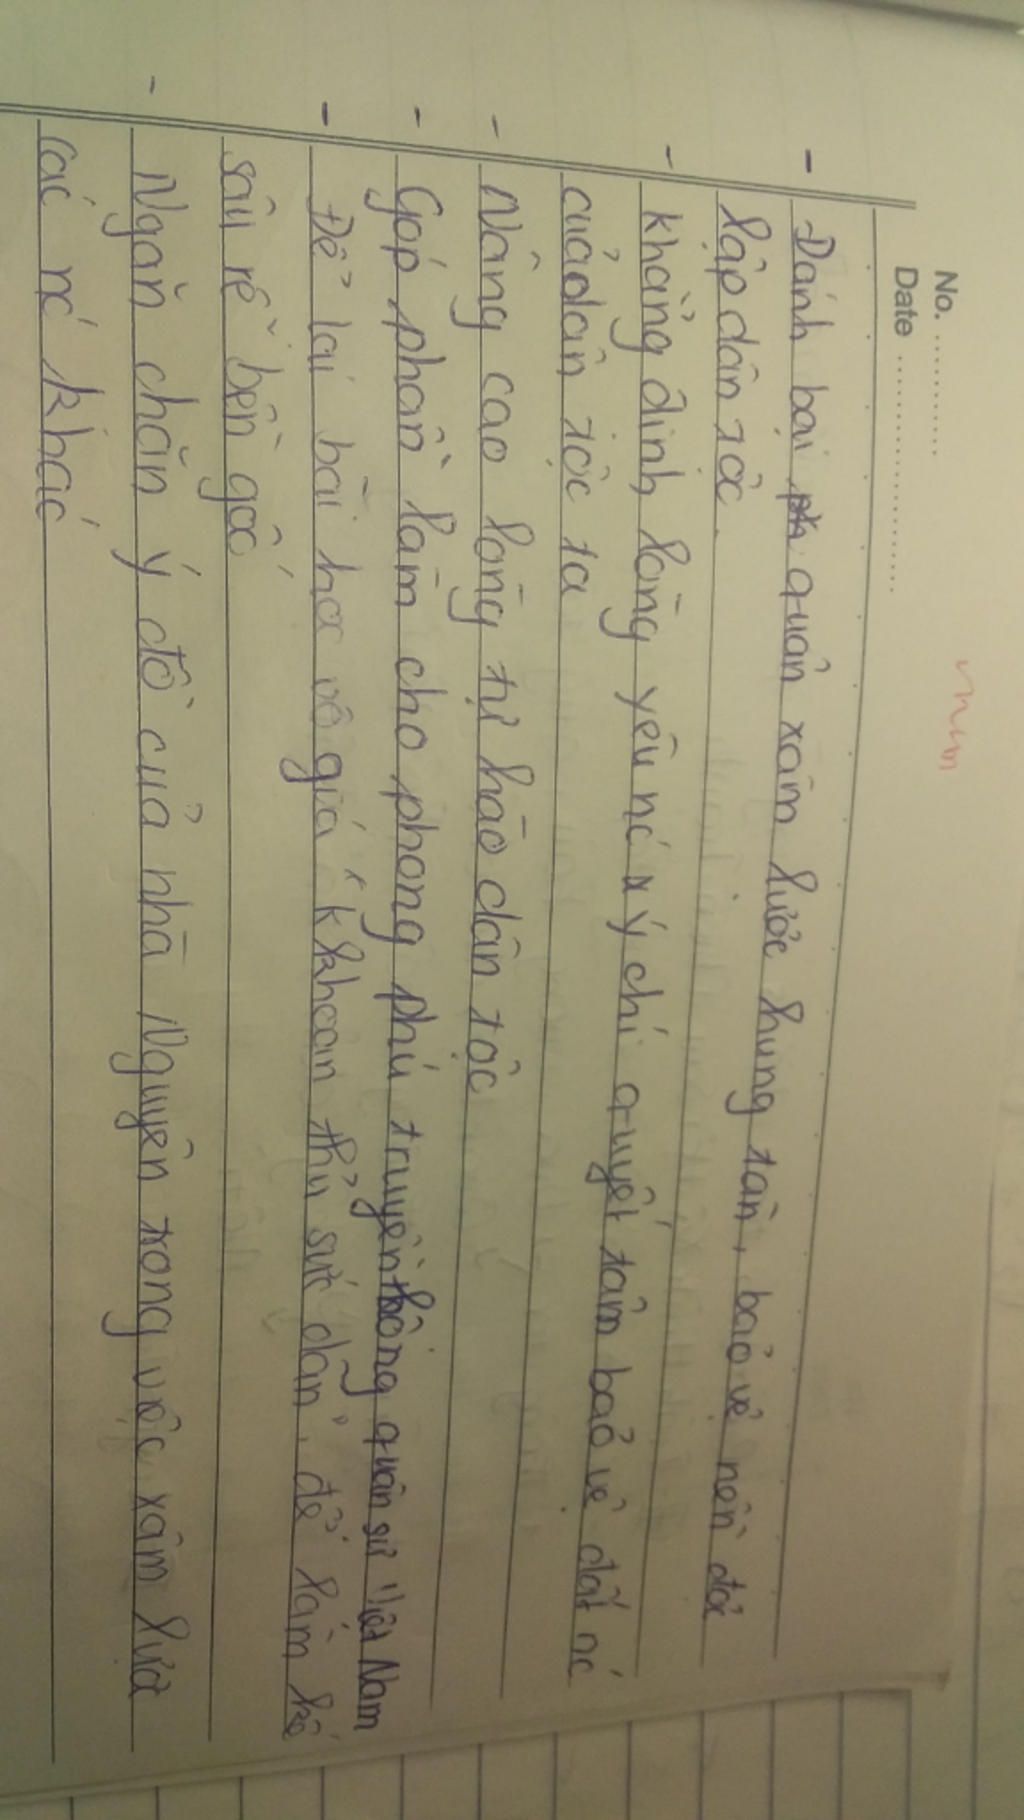 No. ............
Date ......................
- Đánh bại quân xâm lược hung tàn, bảo vệ nền độc
lập dân tộc.
- Khẳng định lòng yêu nc ý chí quyết tâm bảo vệ đất nc
của dân tộc ta
- Nâng cao lòng tự hào dân tộc
- Góp phần làm cho phong phú truyền thống quân sự Việt Nam
- Để lại bài học vô giá: k khoan thư sức dân, để làm kế
sâu rễ bền gốc
- Ngăn chặn ý đồ của nhà Nguyên trong việc xâm lược
các nc khác